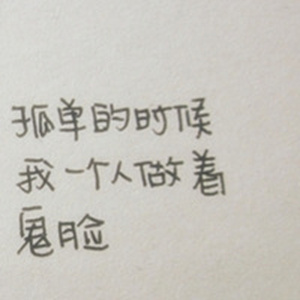 孤单的时候
我一个人做着
鬼脸